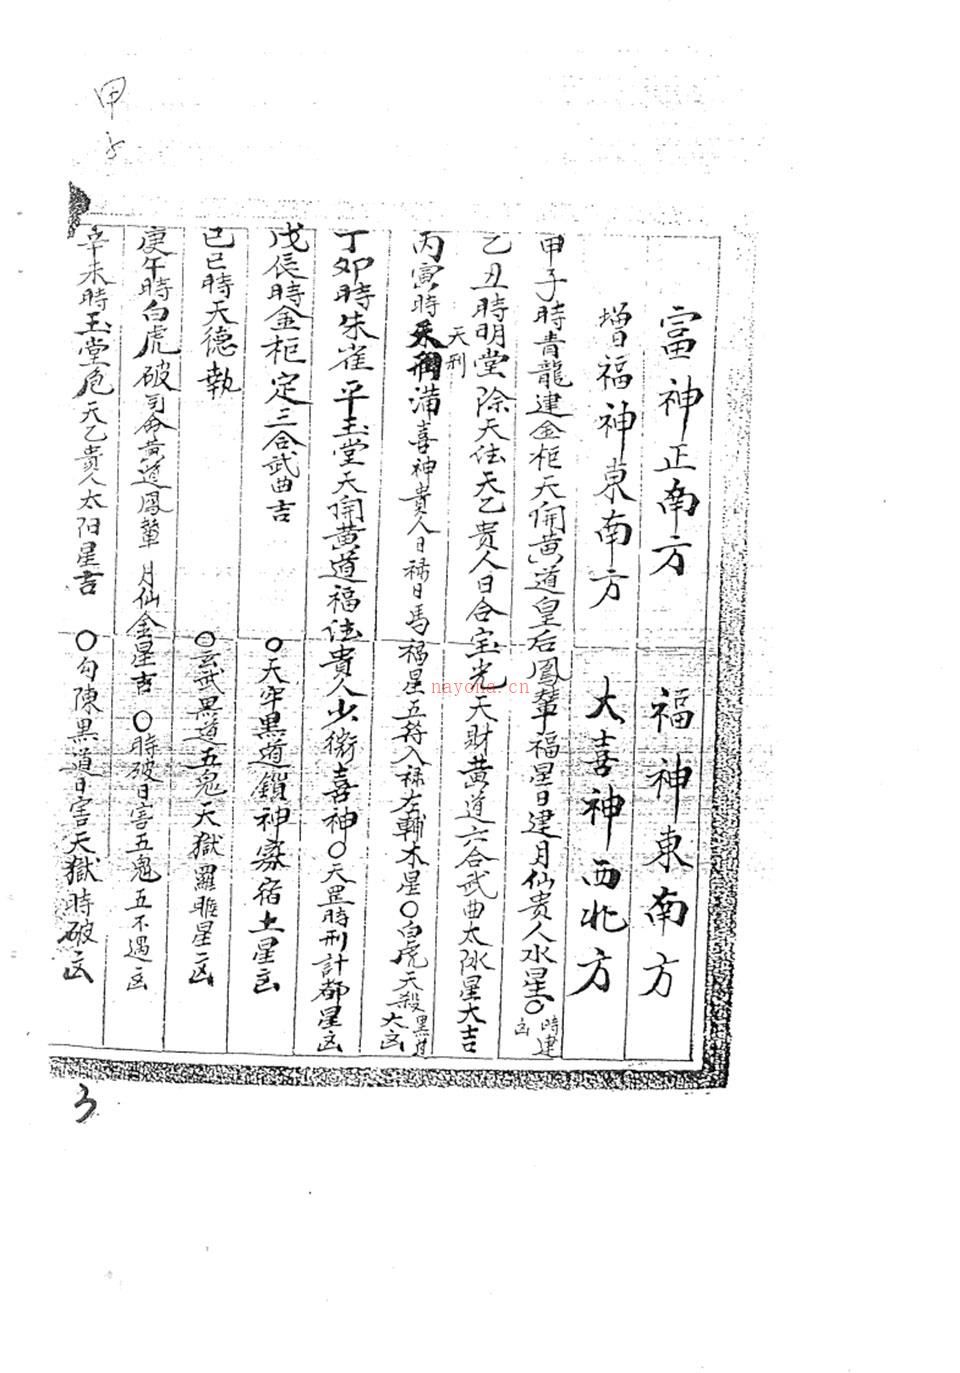 甲子
富神正南方 福神東南方
增福神東南方 大喜神西北方
甲子時青龍建金柜天開黄道皇后鳳輦福星日建月仙贵人水星○時建凶
乙丑時明堂除天德天乙贵人日合宝光天財黄道六合武曲太阴星大吉
丙寅時天刑滿喜神貴人日禄日馬福星五符入禄左輔木星○白虎天殺黑道大凶
丁卯時朱雀平玉堂天開黄道福德貴人少微喜神○天罡時刑計都星凶
戊辰時金柜定三合武曲吉 ○天牢黑道鎖神寡宿土星凶
己巳時天德執 ○玄武黑道五鬼天獄羅睺星凶
庚午時白虎破司命黄道鳳輦月仙金星吉○時破日害五鬼五不遇凶
辛未時玉堂危天乙貴人太阳星吉 ○勾陳黑道日害天獄時破凶
nayona.cn
3